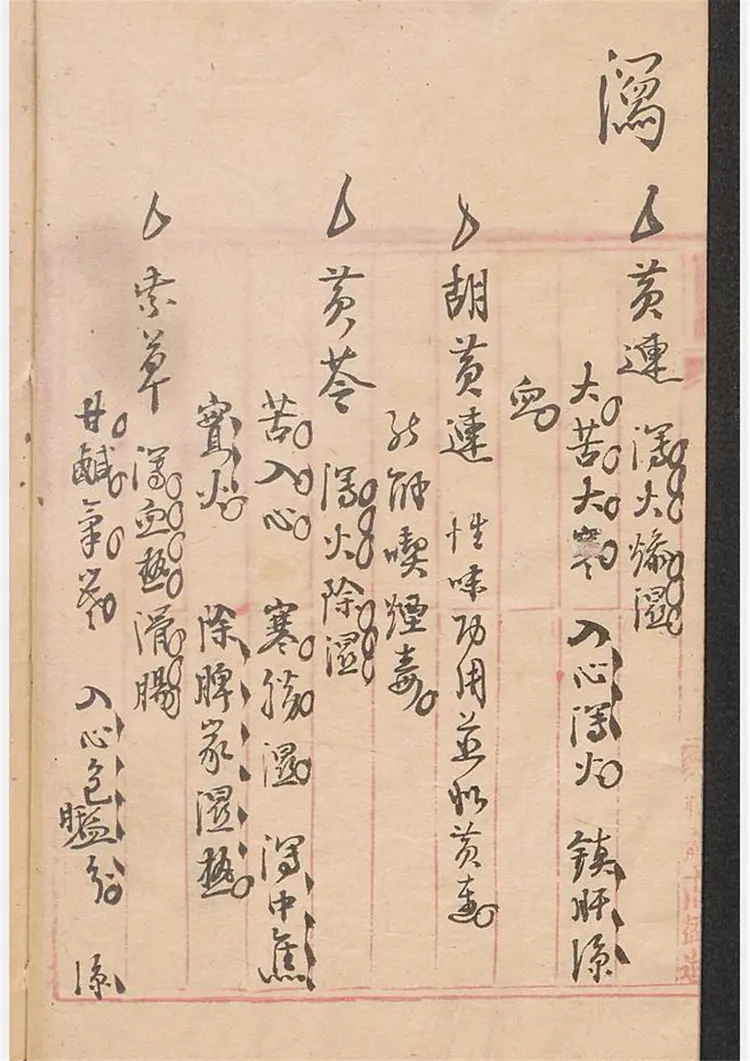 瀉
黃連 瀉火燥濕
大苦大寒 入心瀉火 鎮肝涼
血
胡黃連 性味功用並似黃連
能解喫煙毒
黃芩 瀉火除濕
苦入心 寒勝濕 瀉中焦
實火 除脾家濕熱
紫草 瀉血熱滑腸
甘鹹氣寒 入心包 涼